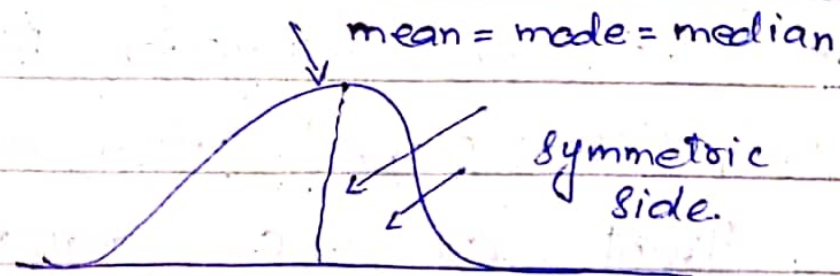 mean = mode = median
symmetric
side.